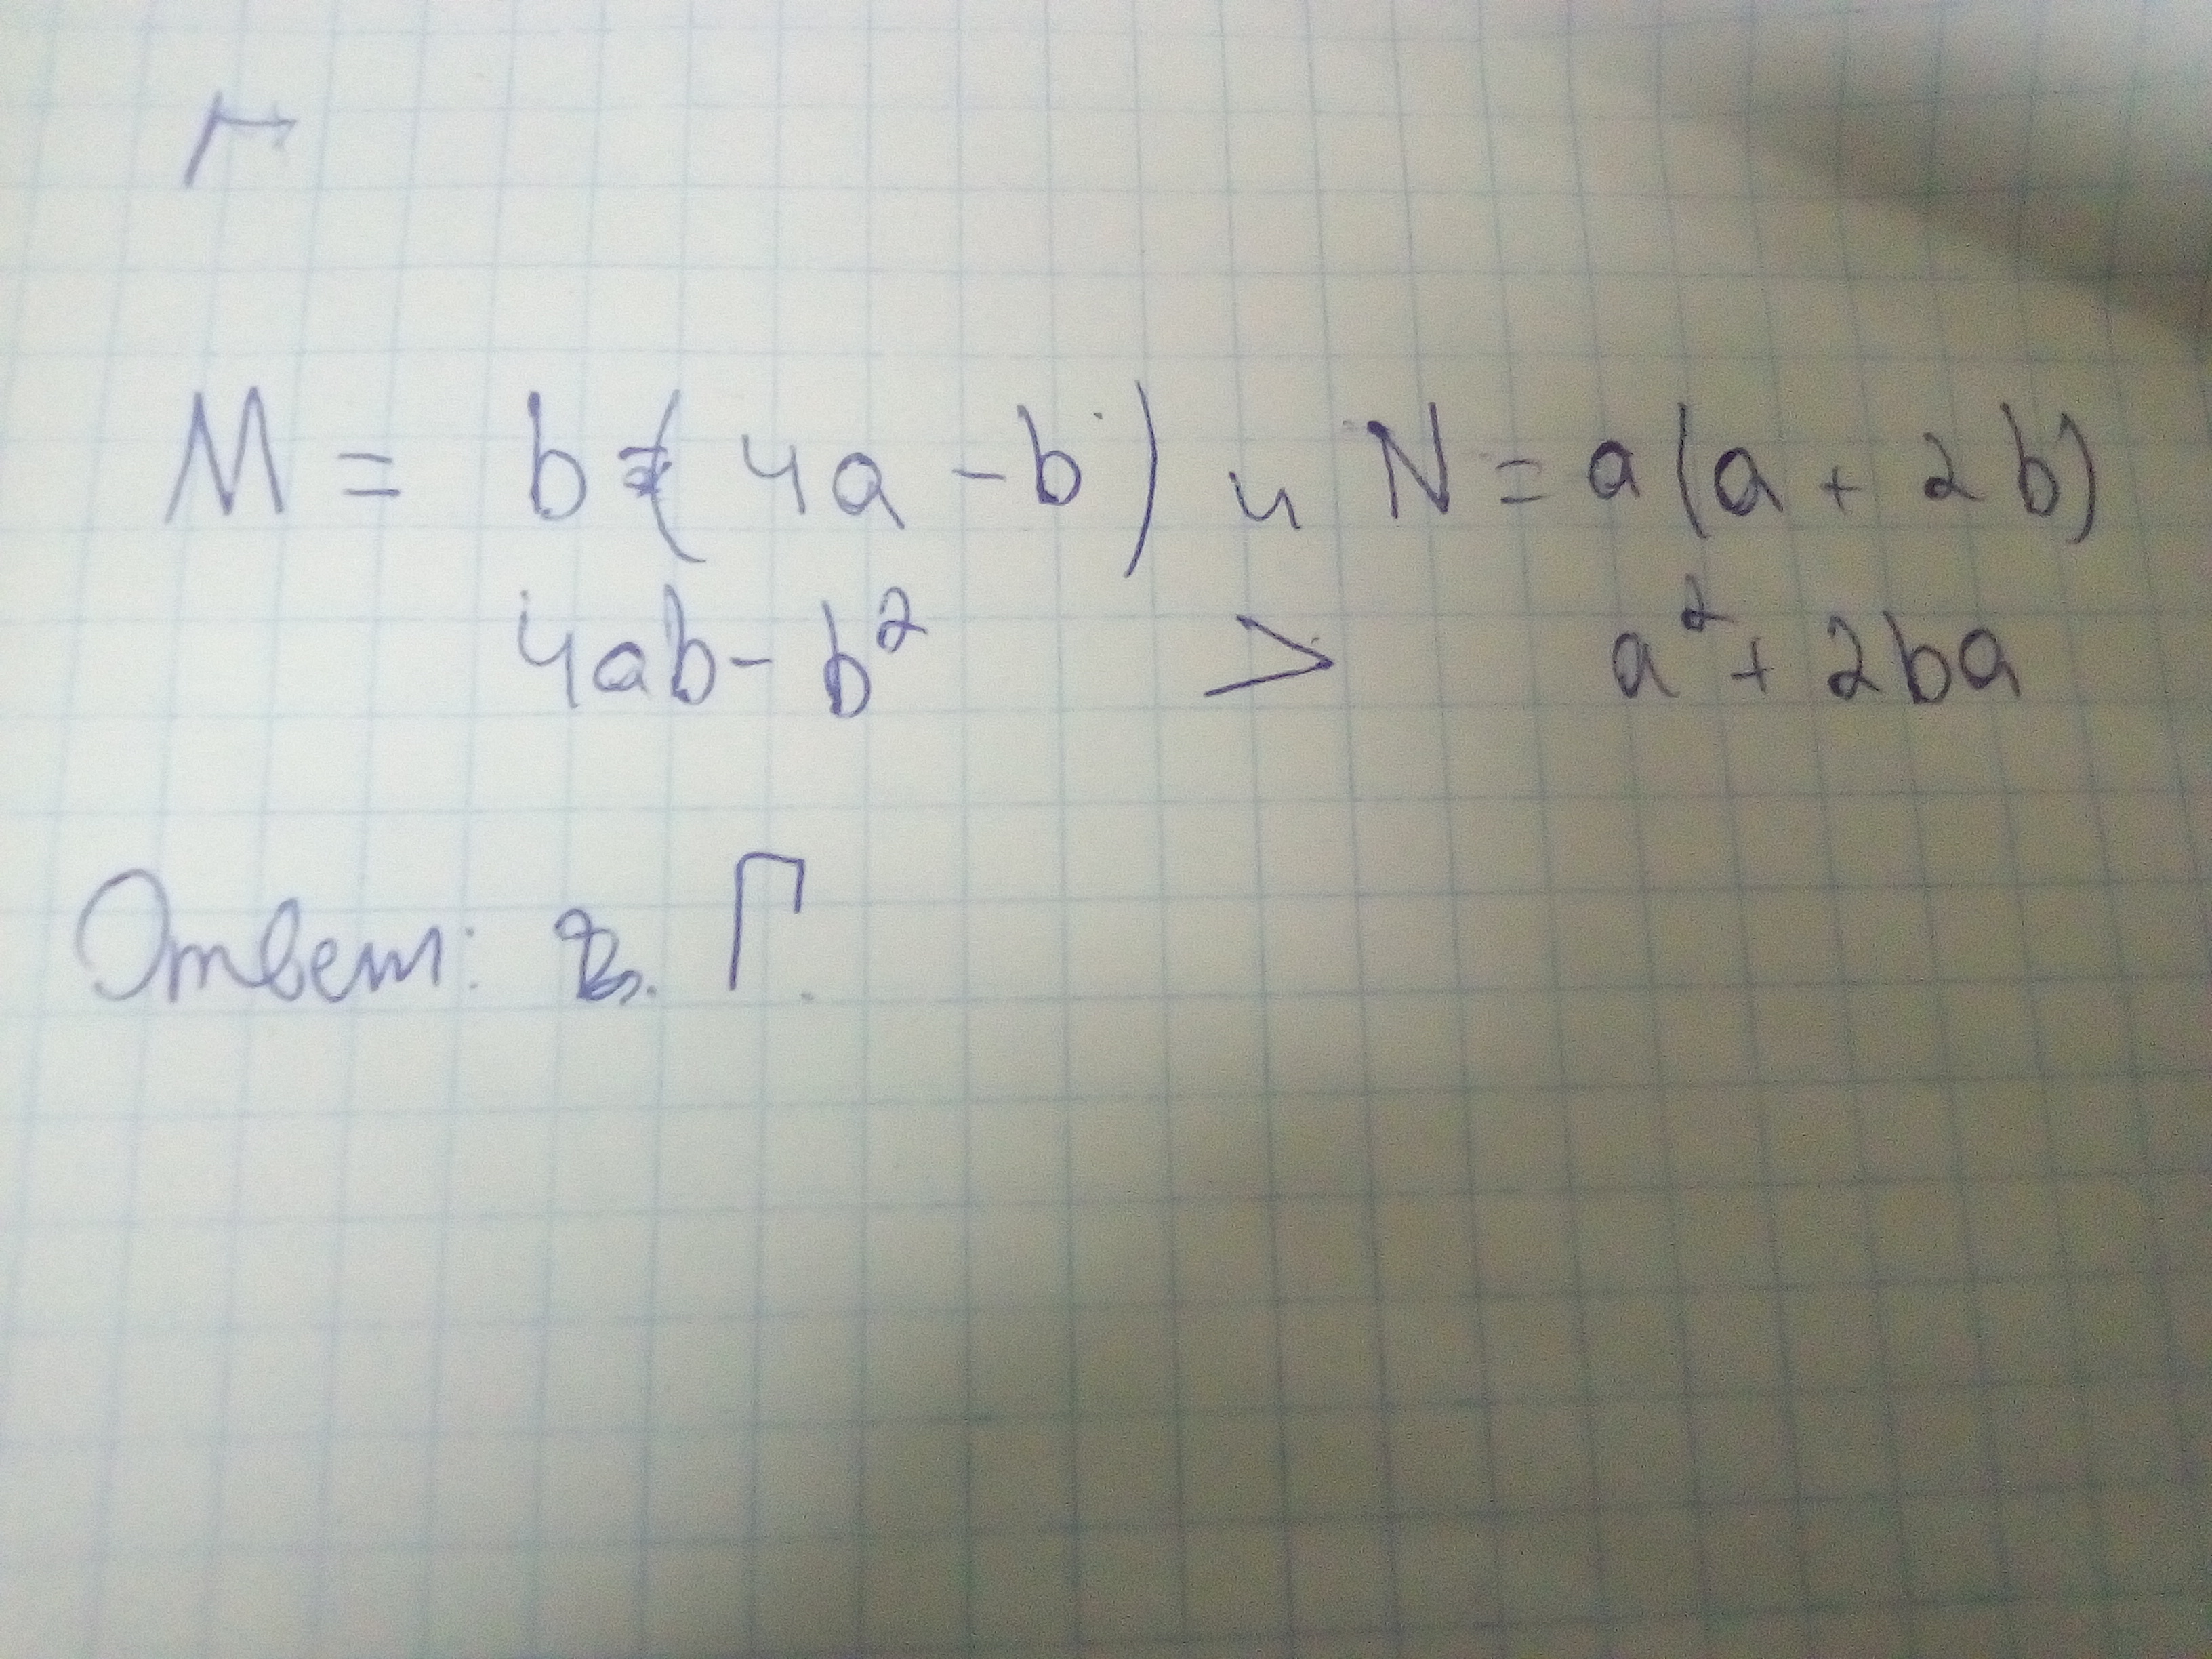 Г
M = b(4a - b) и N = a(a + 2b)
4ab - b² > a² + 2ba
Ответ: Г.